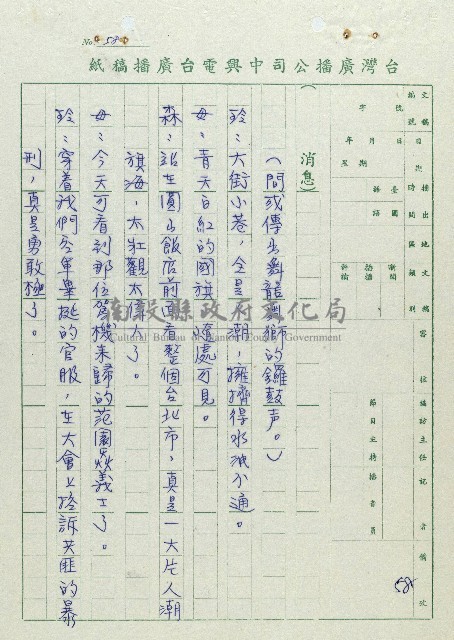 No. 58
台灣廣播公司中興電台廣播稿紙
消息)
(間或傳出舞龍舞獅的鑼鼓声。)
玲：大街小巷，全是人潮，擁擠得水洩不通。
母：青天白日紅的國旗，隨處可見。
森：站在圓山飯店前面看整個台北市，真是一大片人潮
旗海，太壯觀太偉大了。
母：今天可看到那位駕機來歸的范園焱義士了。
玲：穿着我們空軍畢挺的官服，在大會上控訴共匪的暴
刑，真是勇敢極了。
文稿編號
字 號
年 月 日
星期
播出時間
地區
文稿類別
臺語
國語
新聞
內容
採訪
編輯
主任
記者
備攷
節目主持播音員
58
南投縣政府文化局
Cultural Bureau of Nantou County Government